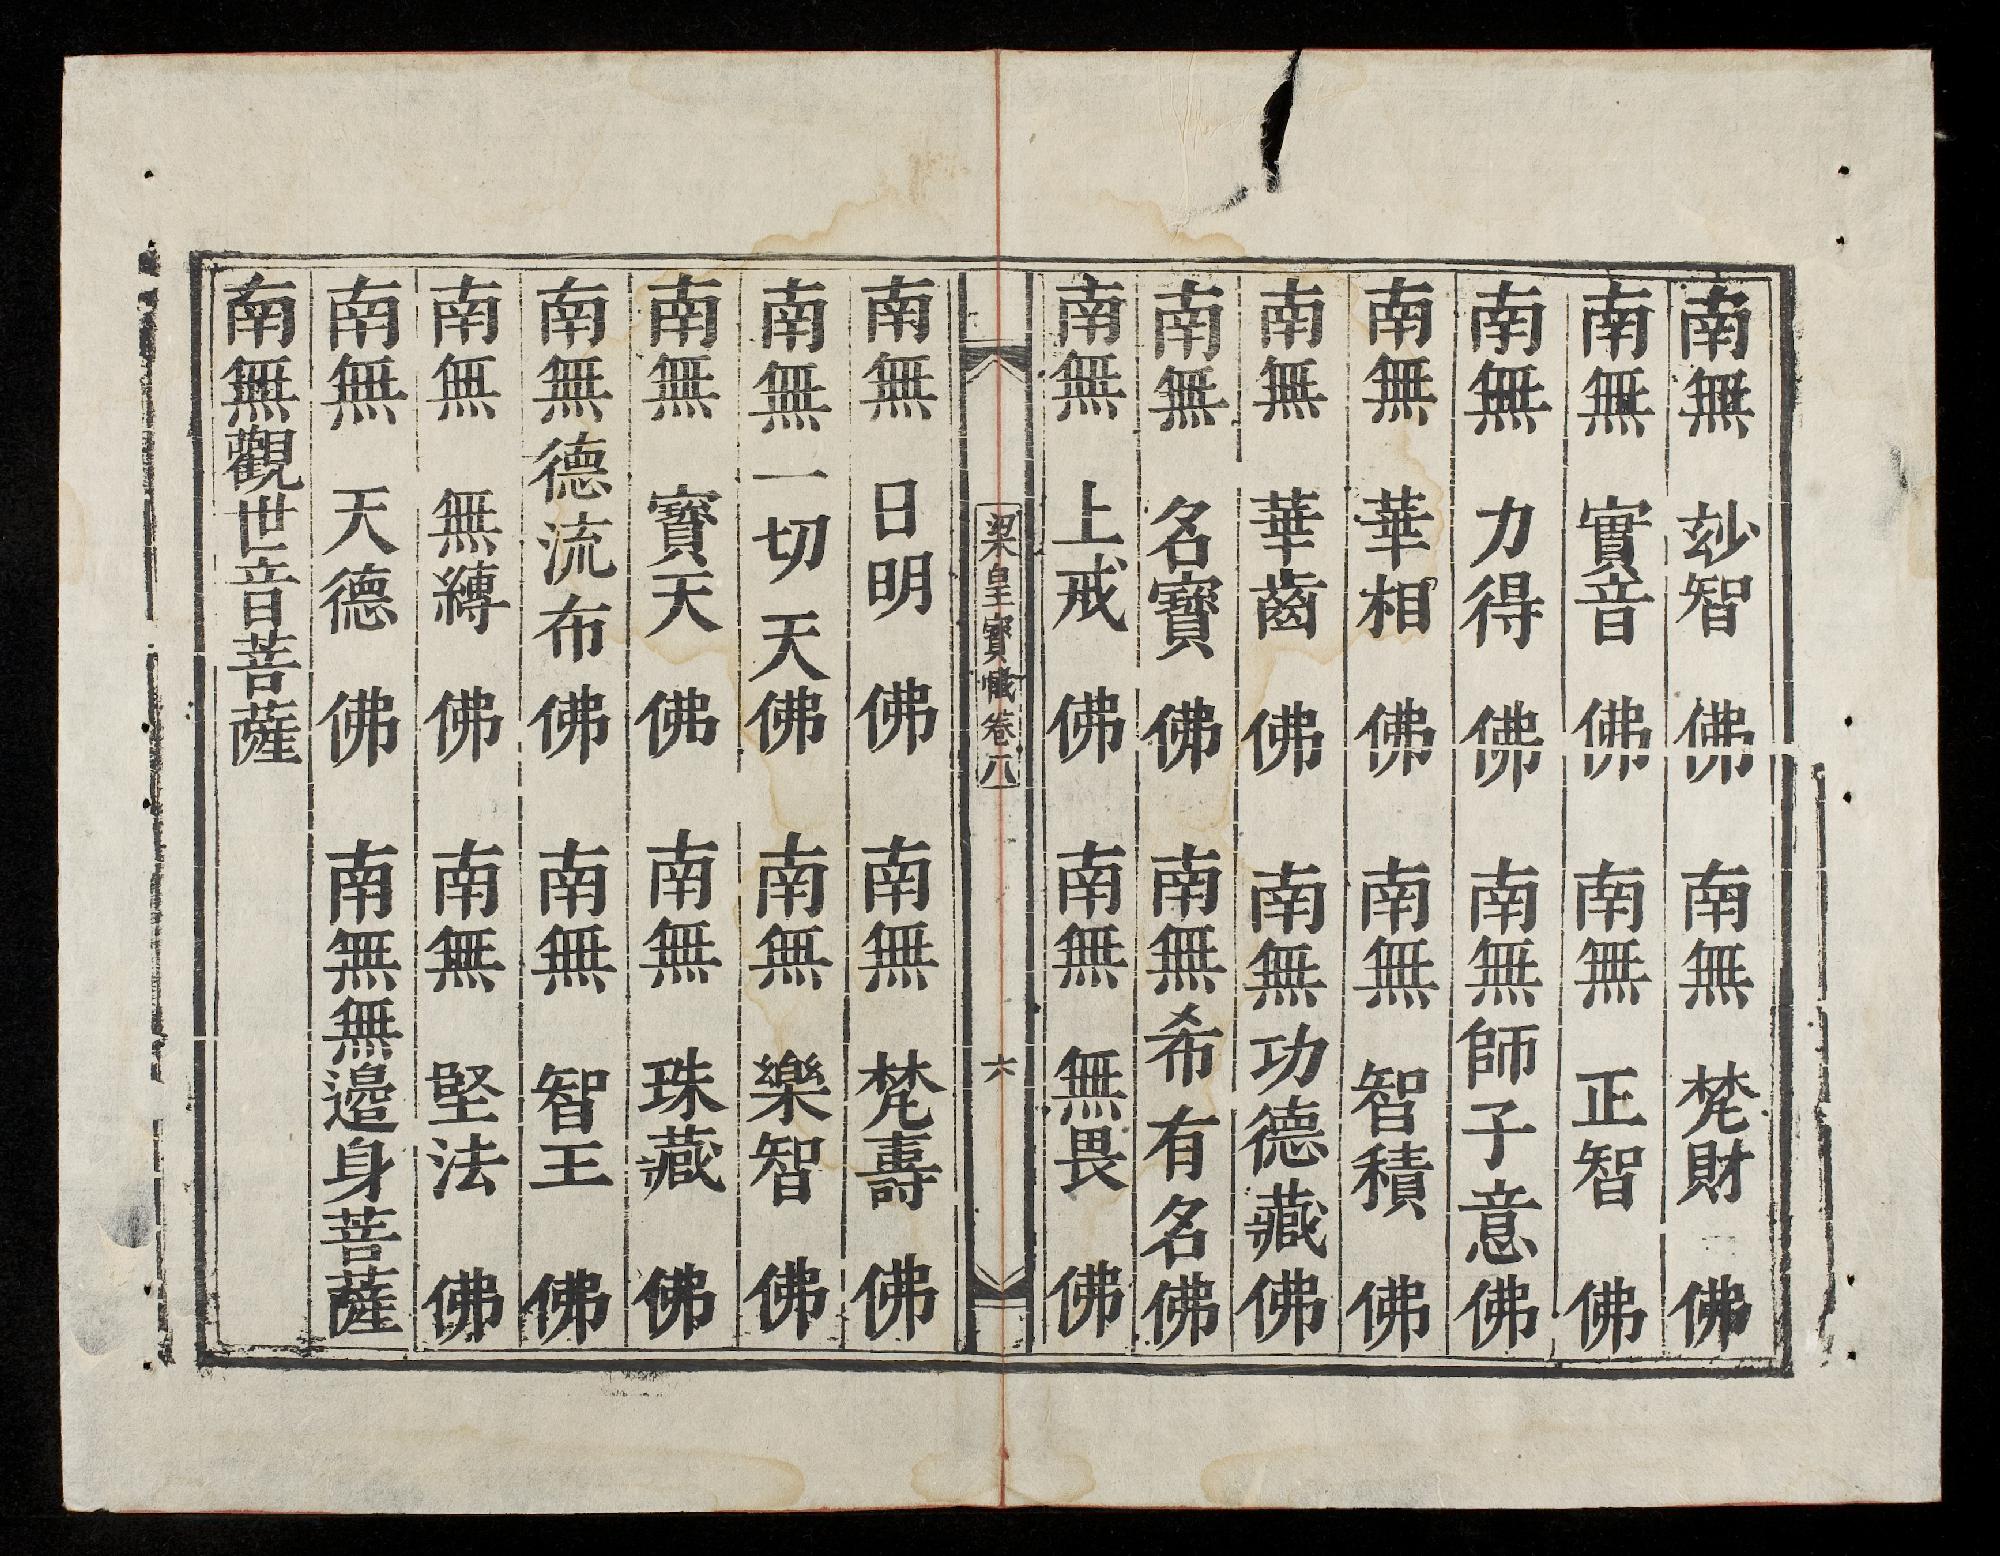 南無玅智佛南無梵財佛
南無實音佛南無正智佛
南無力得佛南無師子意佛
南無華相佛南無智積佛
南無華齒佛南無功德藏佛
南無名寶佛南無希有名佛
南無上戒佛南無無畏佛
梁皇寶懺卷八
六
南無日明佛南無梵壽佛
南無一切天佛南無樂智佛
南無寶天佛南無珠藏佛
南無德流布佛南無智王佛
南無無縛佛南無堅法佛
南無天德佛南無無邉身菩薩
南無觀世音菩薩